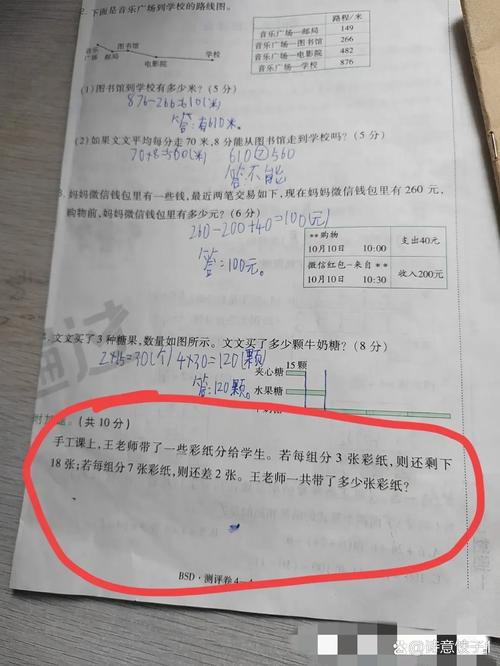 2. 下面是音乐广场到学校的路线图。
路程/米
音乐广场—邮局 149
音乐广场—图书馆 266
音乐广场—电影院 482
音乐广场—学校 876
音乐广场 邮局 图书馆 电影院 学校
(1)图书馆到学校有多少米?(5 分)
876-266=610(米)
答:有610米。
(2)如果文文平均每分走 70 米,8 分能从图书馆走到学校吗?(5 分)
70×8=560(米) 610>560
答不能
妈妈微信钱包里有一些钱,最近两笔交易如下,现在妈妈微信钱包里有 260 元,
购物前,妈妈微信钱包里有多少元?(6 分)
260-200+40=100(元)
答:=100元。
**购物
10月10日 10:00 支出40元
微信红包-来自**
10月10日 10:30 收入200元
文文买了 3 种糖果,数量如图所示。文文买了多少颗牛奶糖?(8 分)
2×15=30(个) 4×30=120(颗)
答:120颗。
夹心糖 15 颗
水果糖
附加题。(共 10 分)
手工课上,王老师带了一些彩纸分给学生。若每组分 3 张彩纸,则还剩下
18 张;若每组分 7 张彩纸,则还差 2 张。王老师一共带了多少张彩纸?
BSD·测评卷4